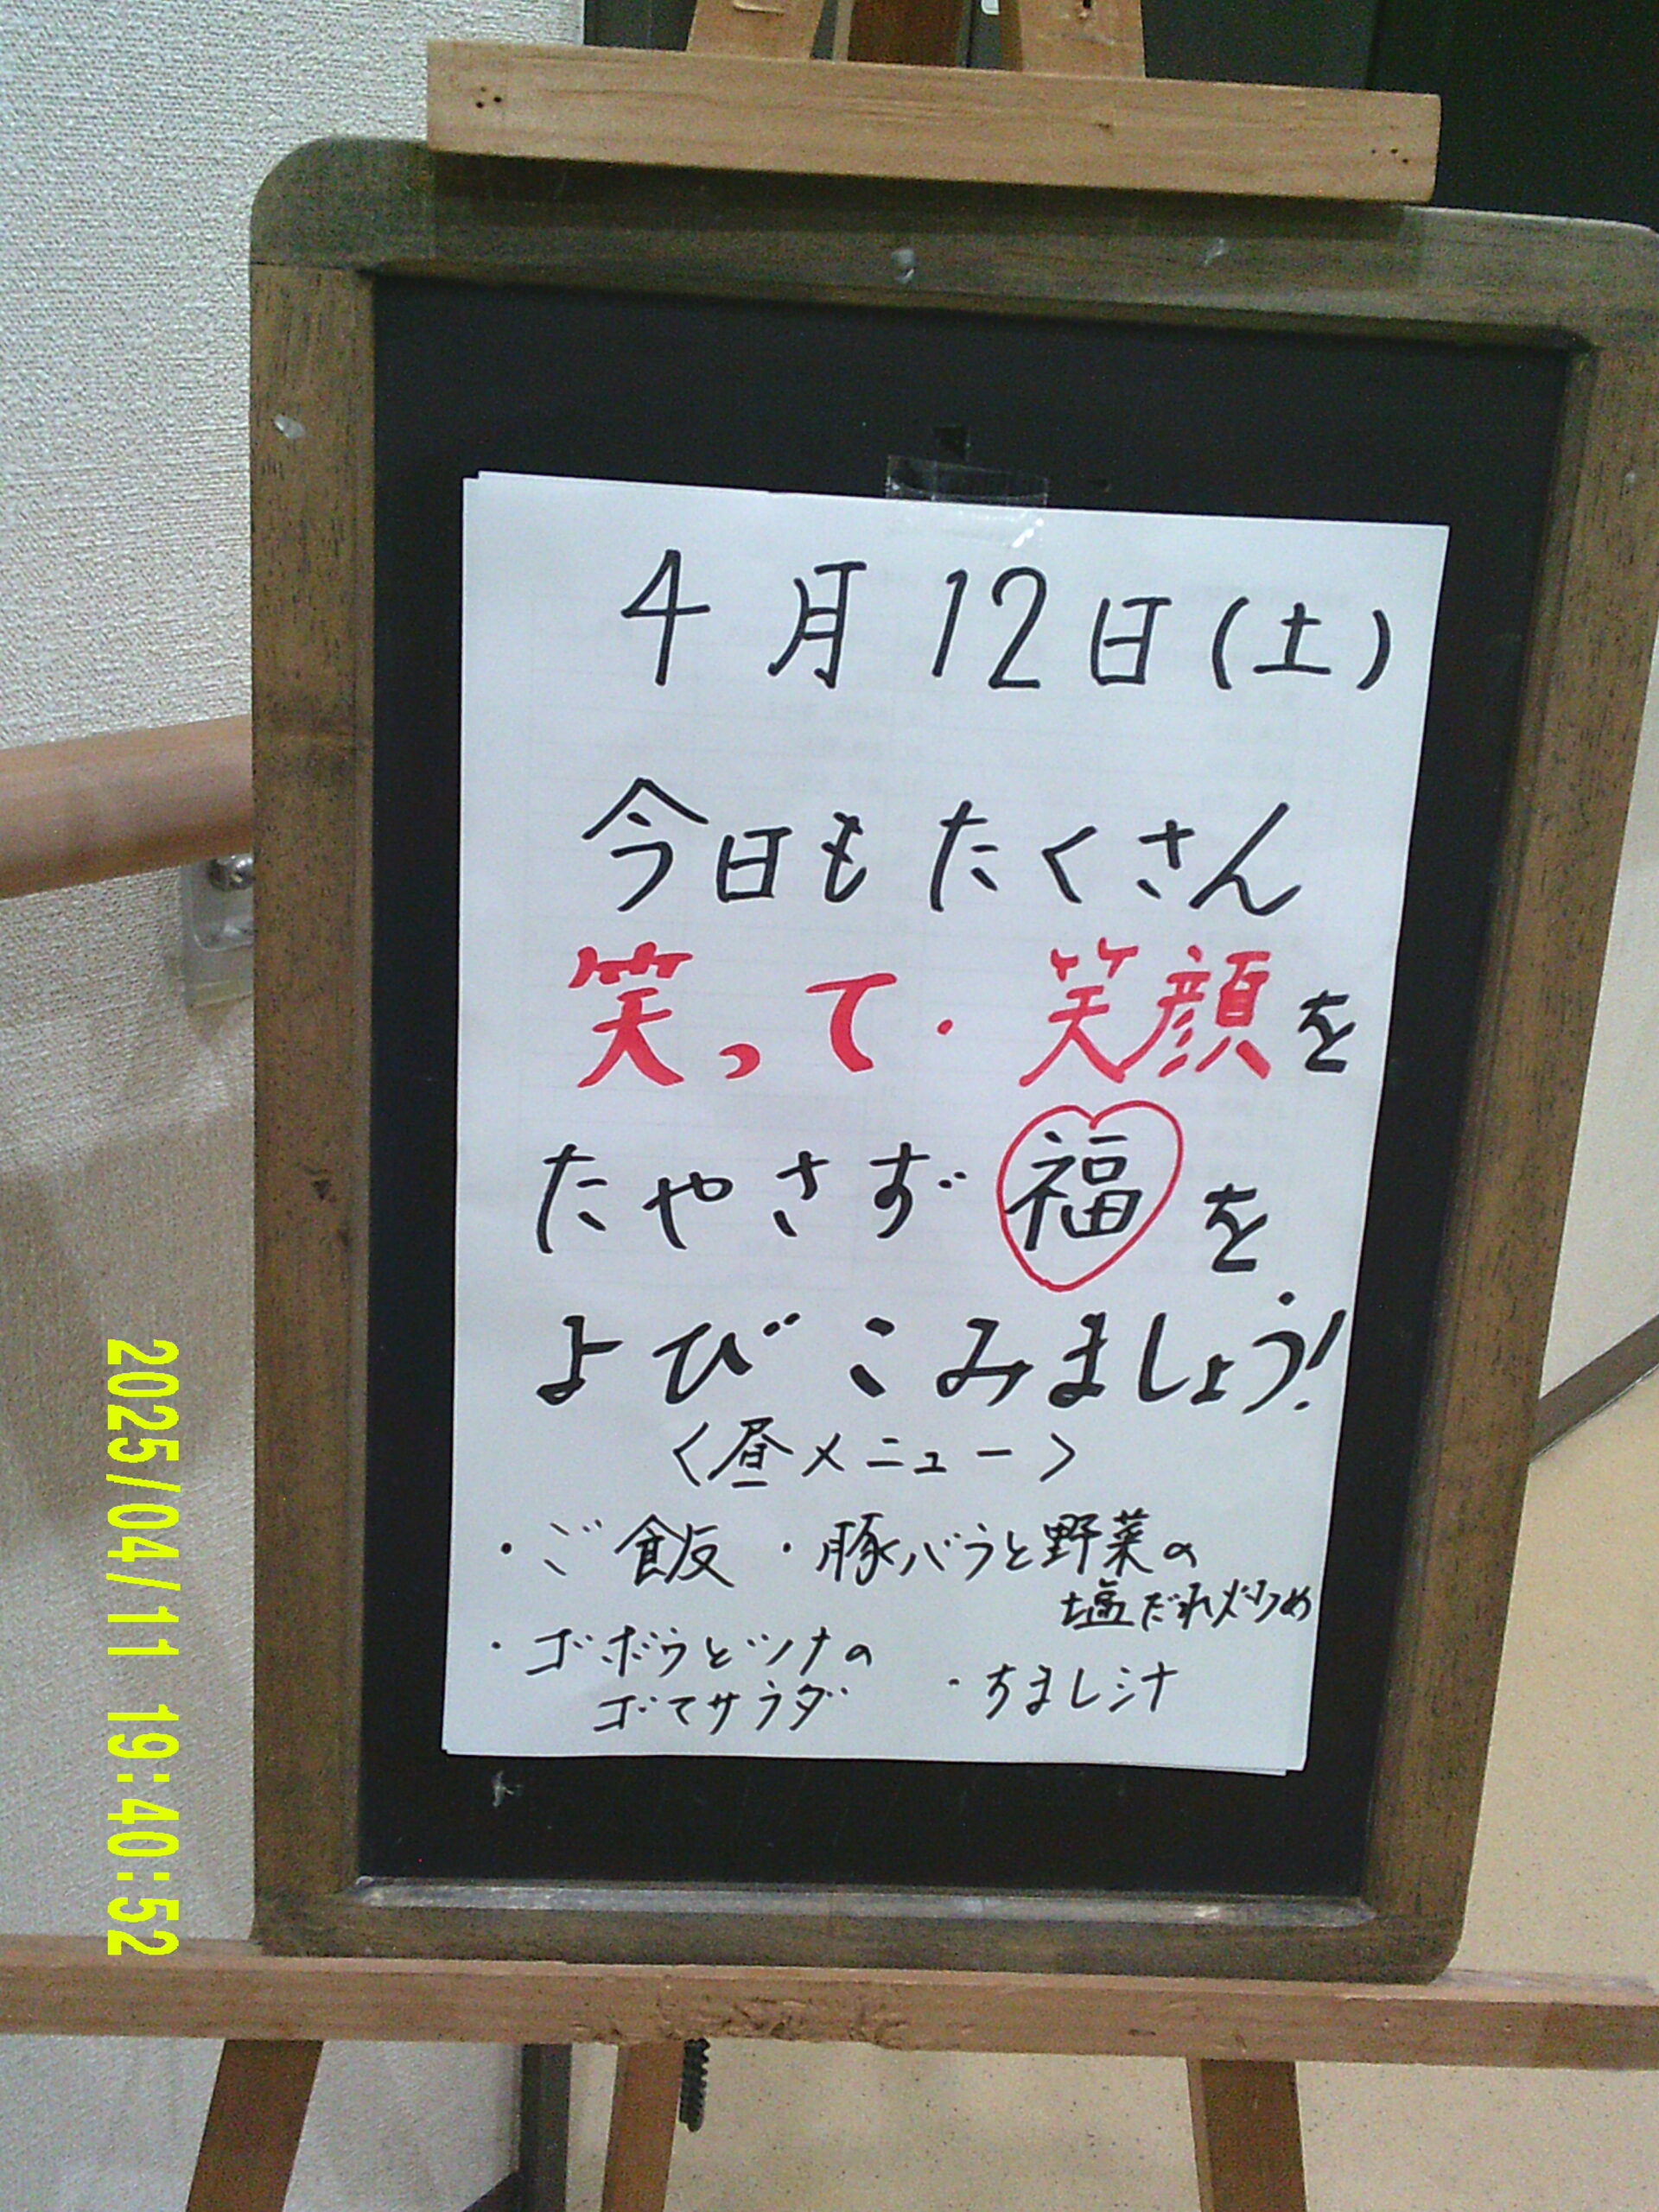 4月12日(土)
今日もたくさん
笑って・笑顔を
たやさず福を
よびこみましょう!
〈昼メニュー〉
・ご飯 ・豚バラと野菜の
塩だれ炒め
・ゴボウとツナの
ゴマサラダ
・すまし汁
2025/04/11 19:40:52